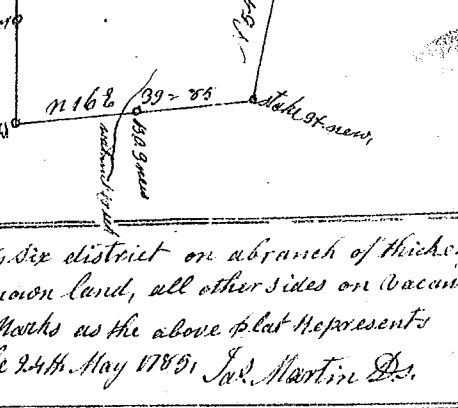 n 16 E 39=85
stake 3x new,
B.O 3x new
y six district on a branch of thicke
nown land, all other sides on Vacan
Marks as the above plat Represents
e 24th May 1785, Jas. Martin Ds.